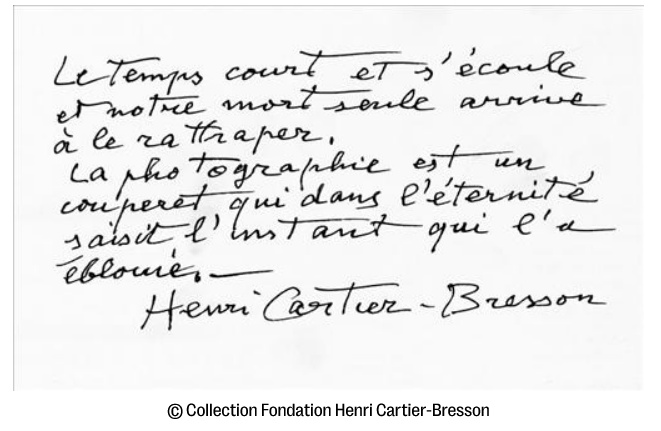 Le temps court et s'écoule
et notre mort seule arrive
à le rattraper.
La photographie est un
couperet qui dans l'éternité
saisit l'instant qui l'a
éblouie.—
Henri Cartier-Bresson
© Collection Fondation Henri Cartier-Bresson